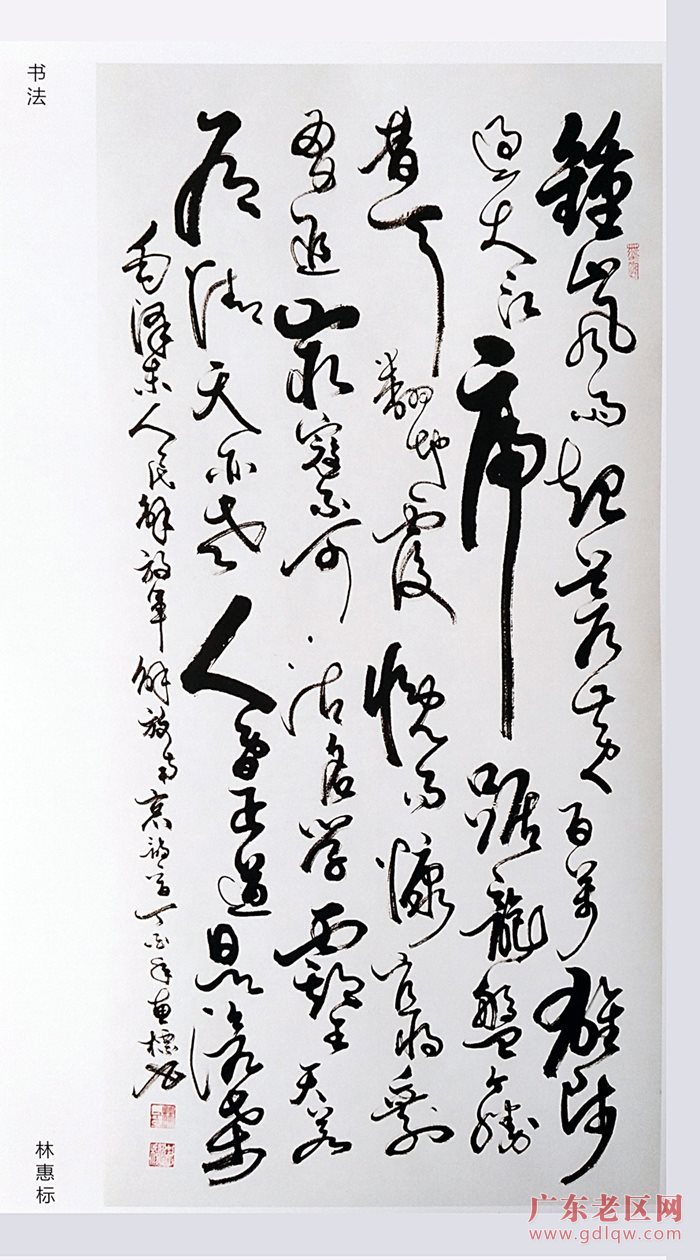 书法
鍾山風雨起蒼黄百萬雄師
過大江虎踞龍盤今勝
昔天翻地覆慨而慷宜將剩
勇追窮寇不可沽名學霸王天若
有情天亦老人間正道是滄桑
毛澤東人民解放軍解放南京詩一首丁酉年惠標書
林惠标
广东老区网
www.gdlqw.com